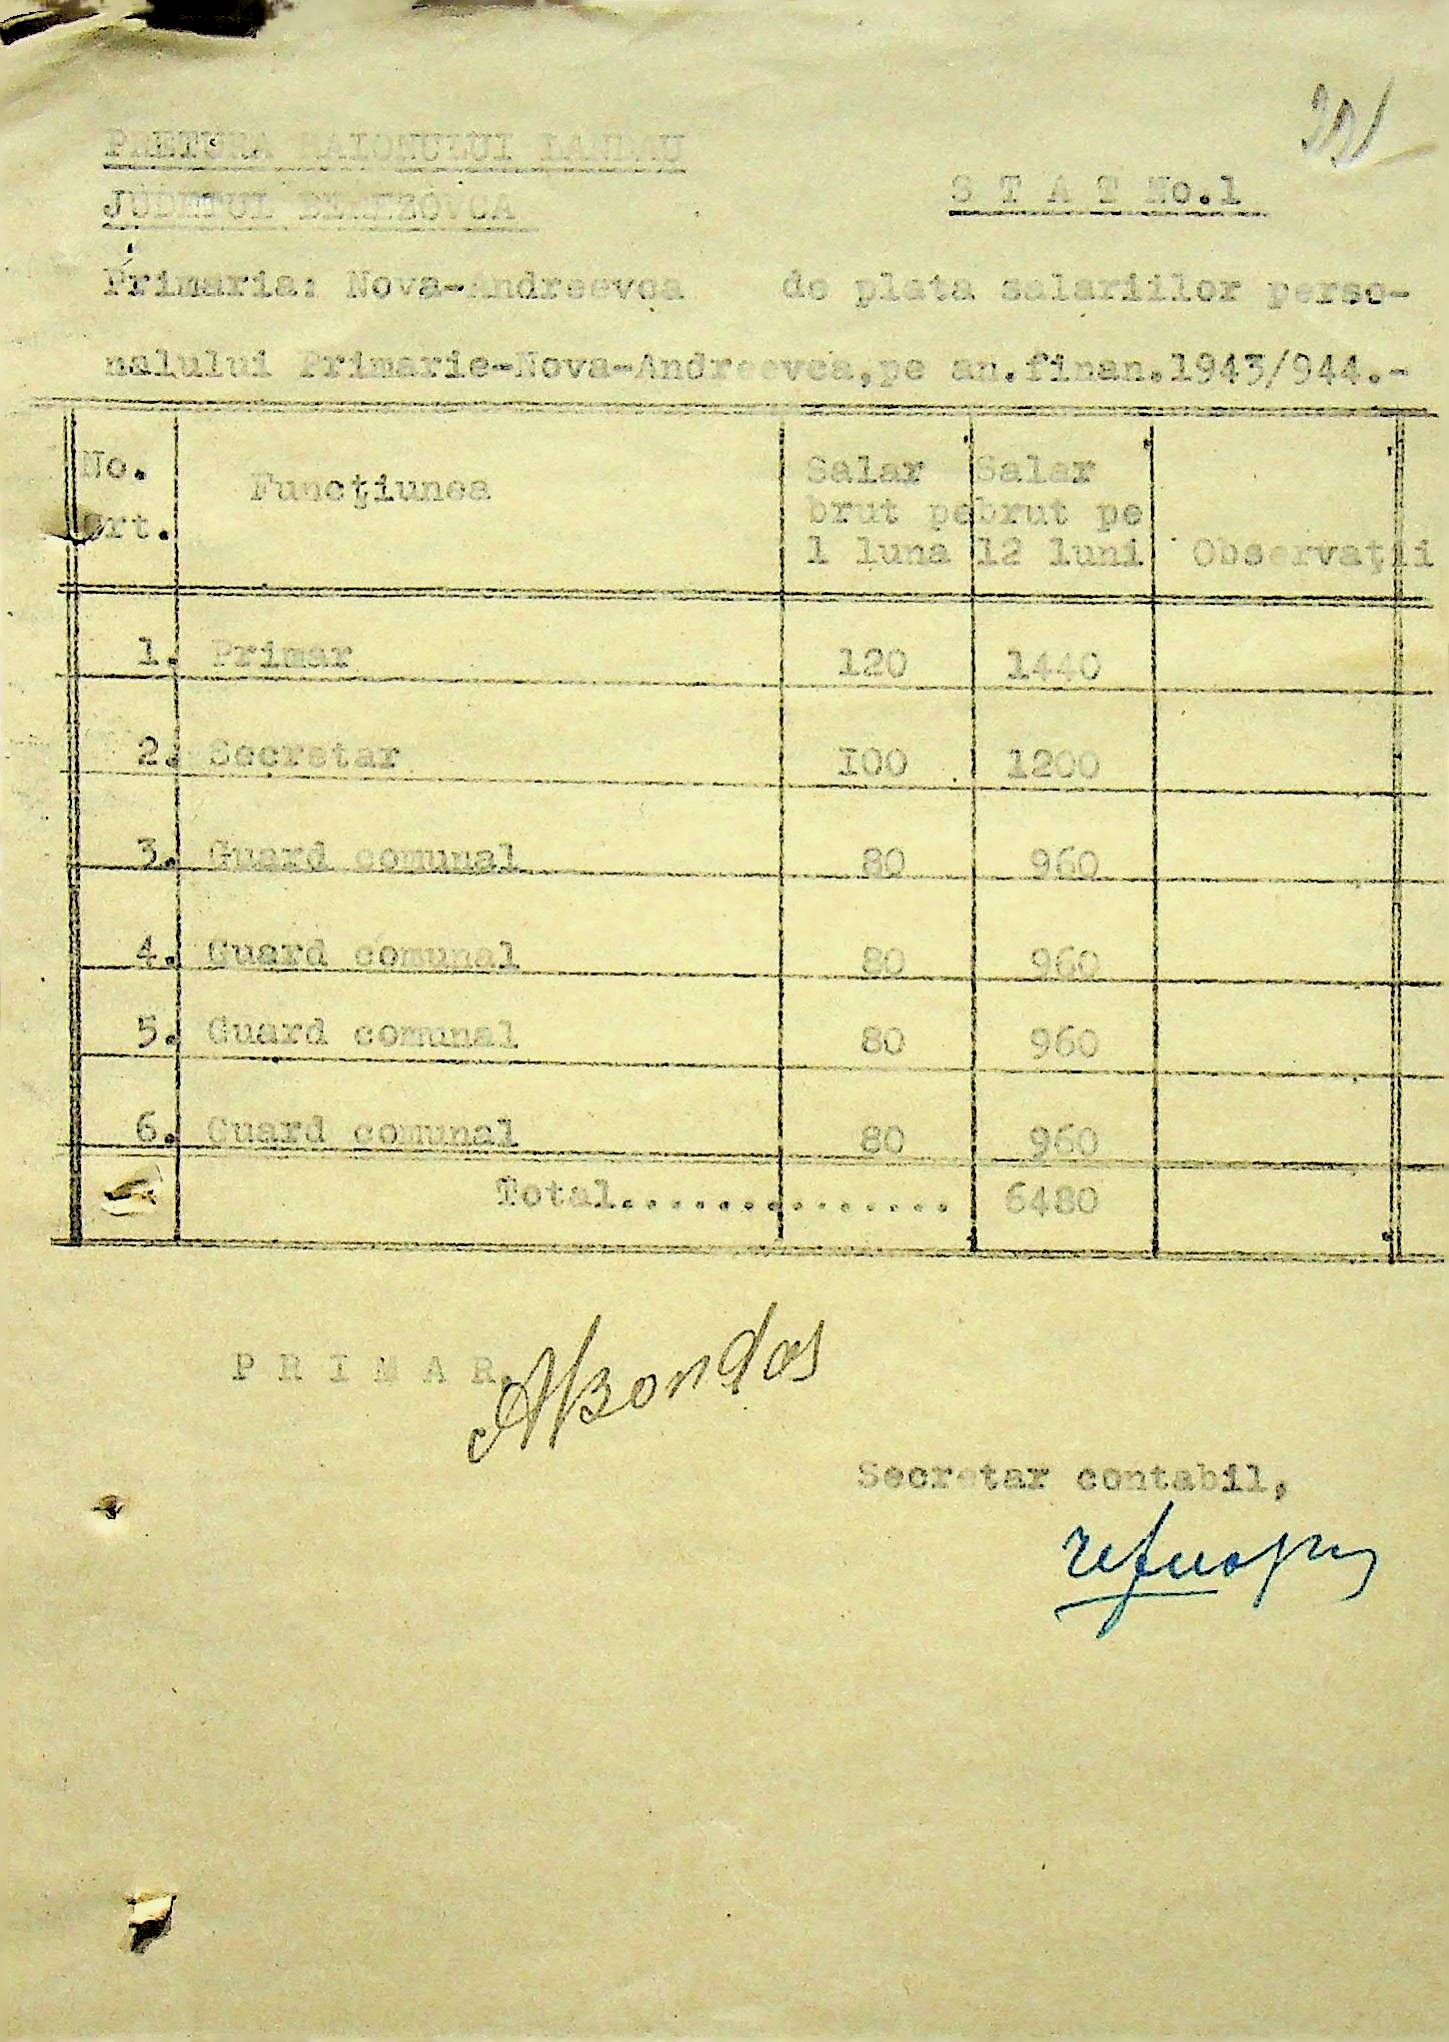 PRETURA RAIONULUI LANDAU
JUDETUL BEREZOVCA
S T A T No.1
Primaria: Nova-Andreevca de plata salariilor perso-
nalului Primarie-Nova-Andreevca,pe an.finan.1943/944.-
No. Crt. Funcţiunea Salar brut pe 1 luna Salar brut pe 12 luni Observaţii
1. Primar 120 1440
2. Secretar 100 1200
3. Guard comunal 80 960
4. Guard comunal 80 960
5. Guard comunal 80 960
6. Guard comunal 80 960
Total............... 6480
P R I M A R,
ABondas
Secretar contabil,